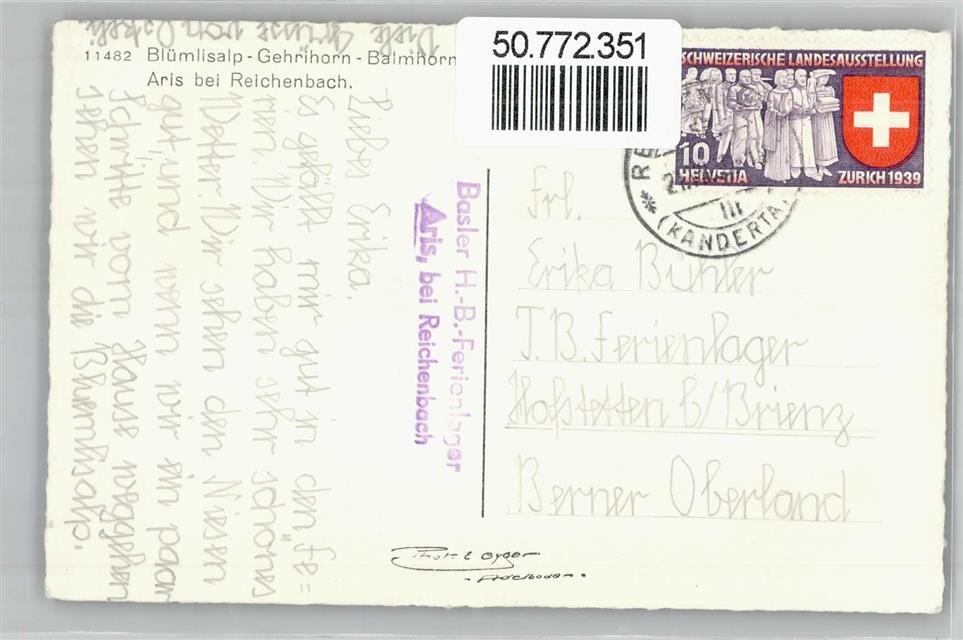 11482 Blümlisalp - Gehrihorn - Balmhorn
Aris bei Reichenbach.
50.772.351
SCHWEIZERISCHE LANDESAUSSTELLUNG
10
HELVETIA
ZURICH 1939
III
(KANDERTA
Basler H.-B.-Ferienlager
Aris, bei Reichenbach
Liebes Erika.
Es gefällt mir gut in den Fe=
rien. Wir haben sehr schönes
Wetter. Wir sehen den Niesen
gut, und wenn wir ein paar
Schritte vom Hause weggehen
sehen wir die Blümlisalp.
Viele Grüsse von
Frl.
Erika Bühler
T.B. Ferienlager
Hofstetten b/Brienz
Berner Oberland
Phot. E Gyger
- Adelboden -